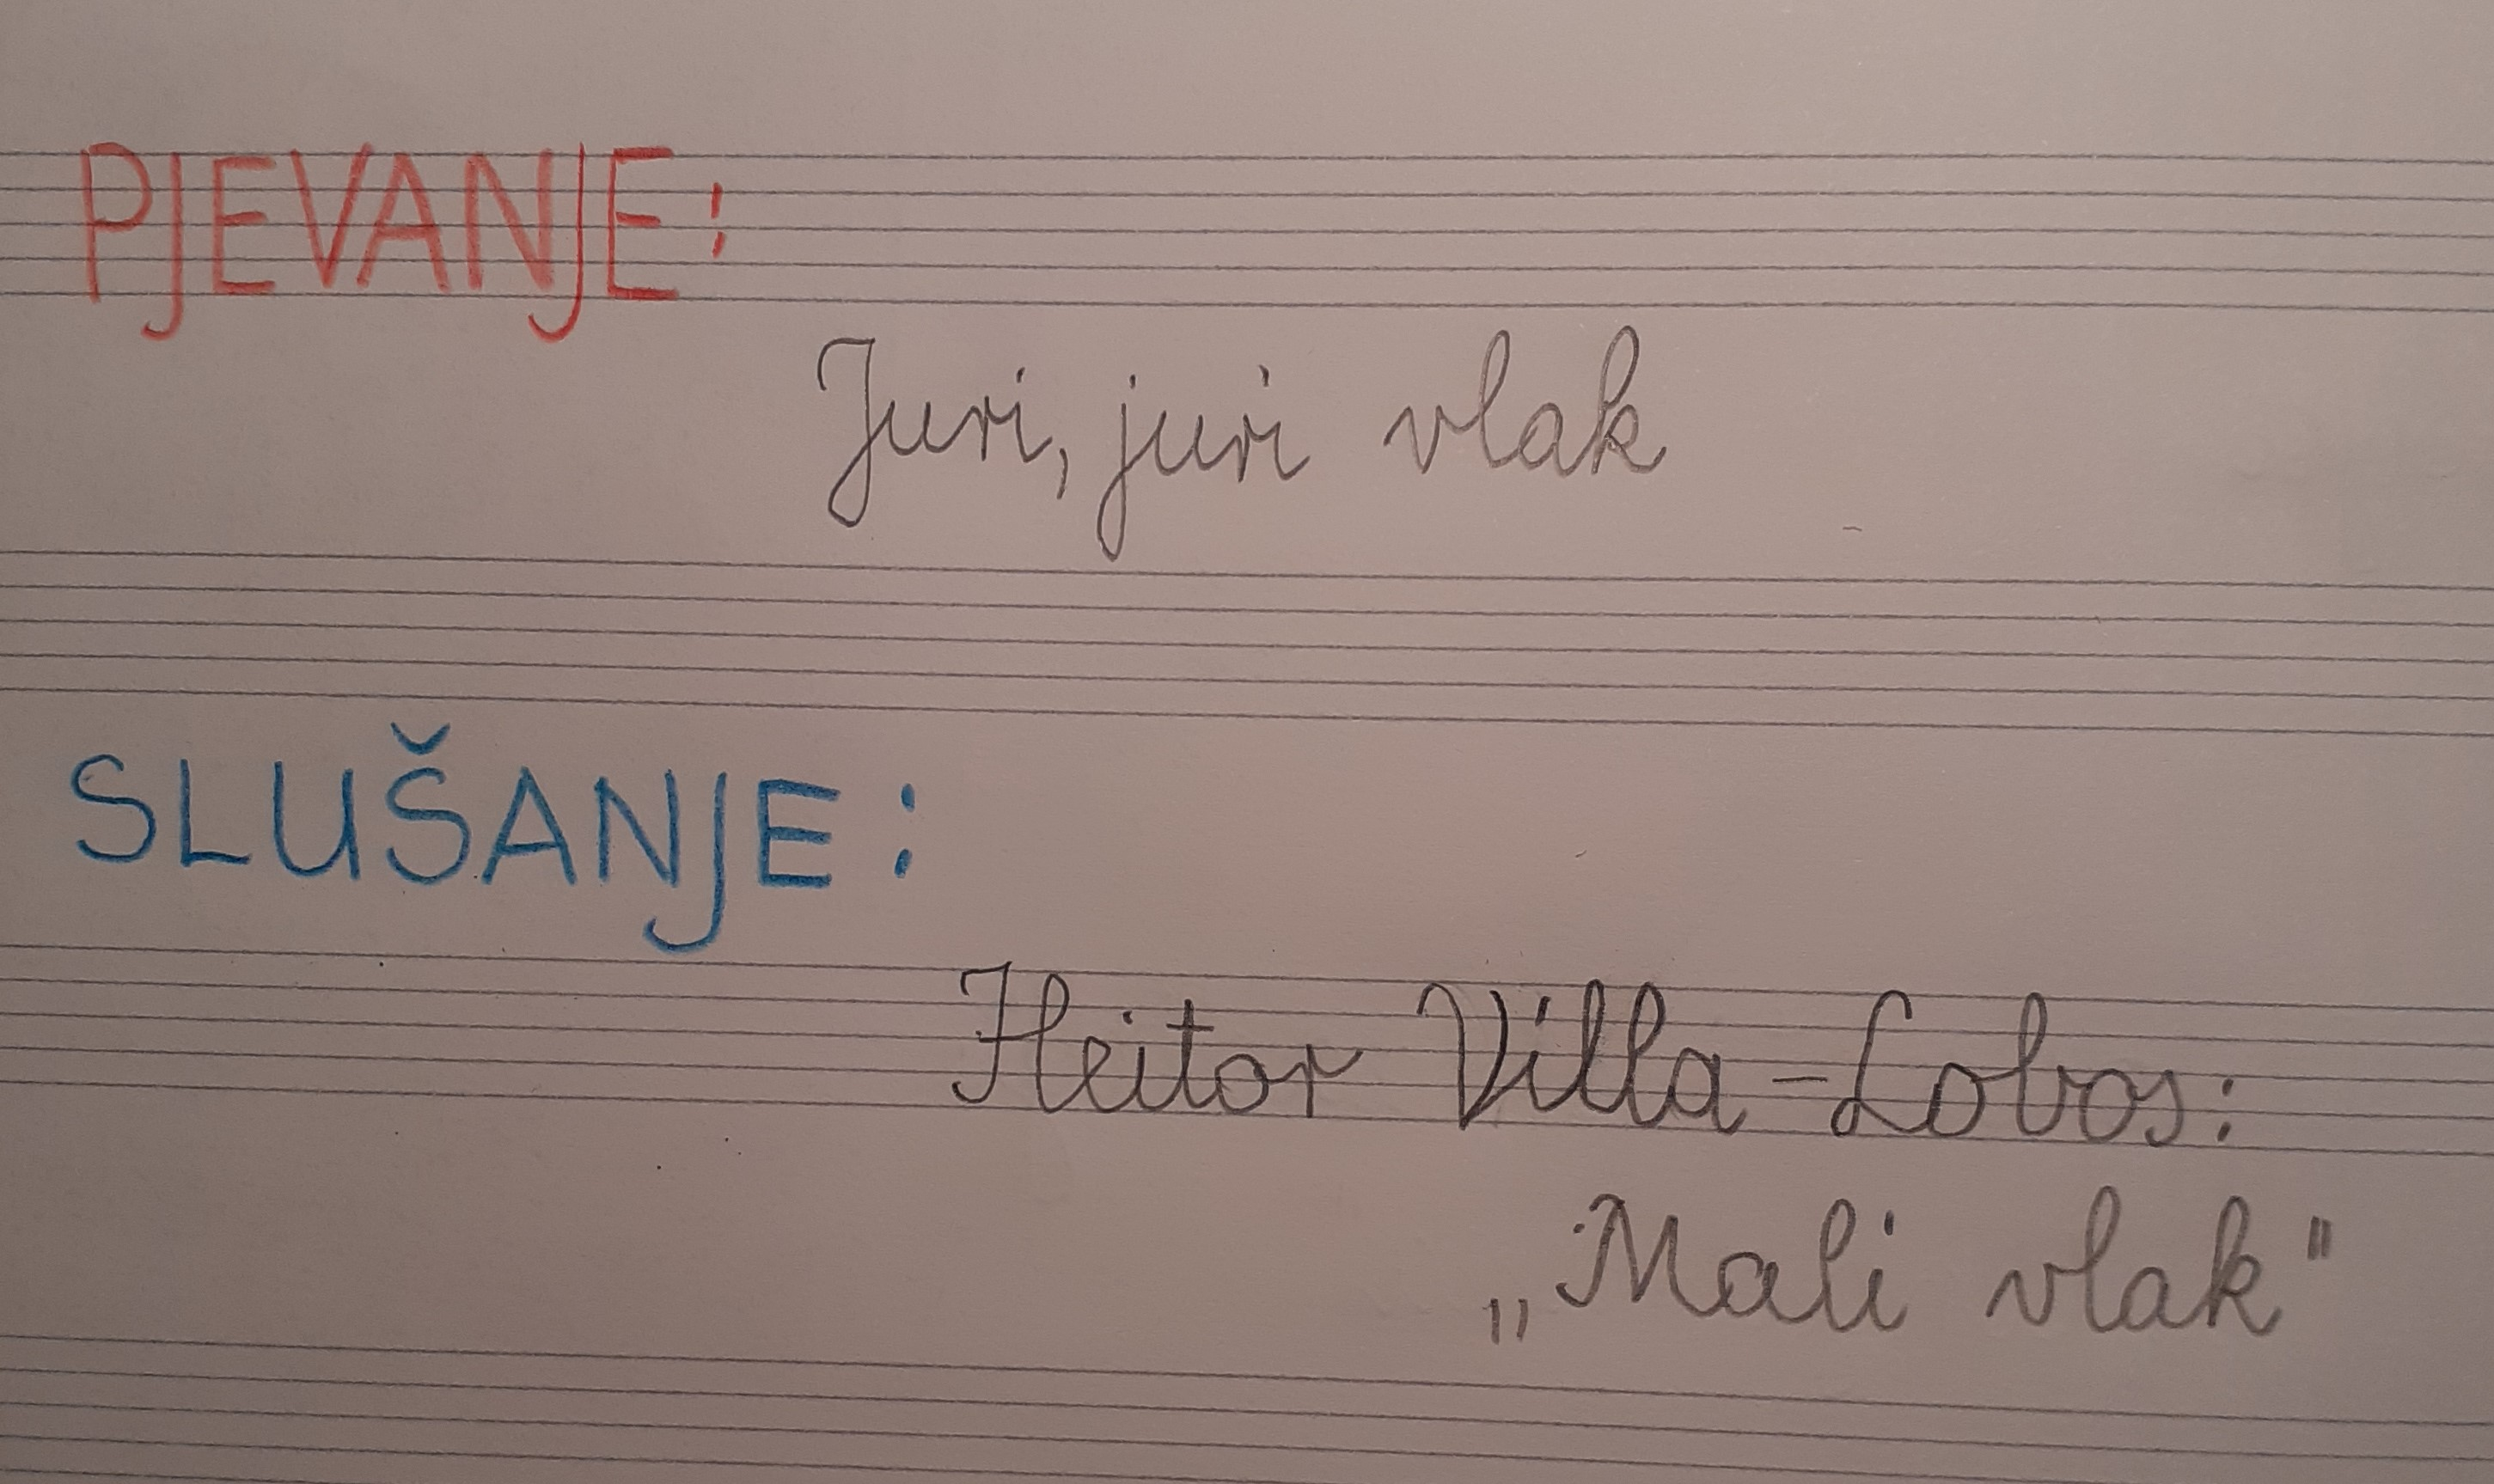 PJEVANJE:
Juri, juri vlak
SLUŠANJE:
Heitor Villa-Lobos:
„Mali vlak"